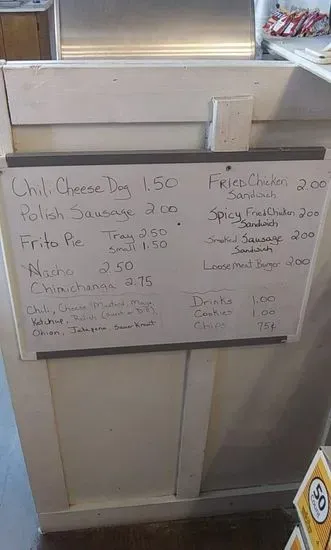 Chili Cheese Dog 1.50
Polish Sausage 2.00
Frito Pie Tray 2.50
Small 1.50
Nacho 2.50
Chimichanga 2.75
Chili, Cheese, Mustard, Mayo,
Ketchup, Relish (Sweet or Dill),
Onion, Jalapeno, Sauer Kraut
Fried Chicken 2.00
Sandwich
Spicy Fried Chicken 2.00
Sandwich
Smoked Sausage 2.00
Sandwich
Loose Meat Burger 2.00
Drinks 1.00
Cookies 1.00
Chips 75¢
50